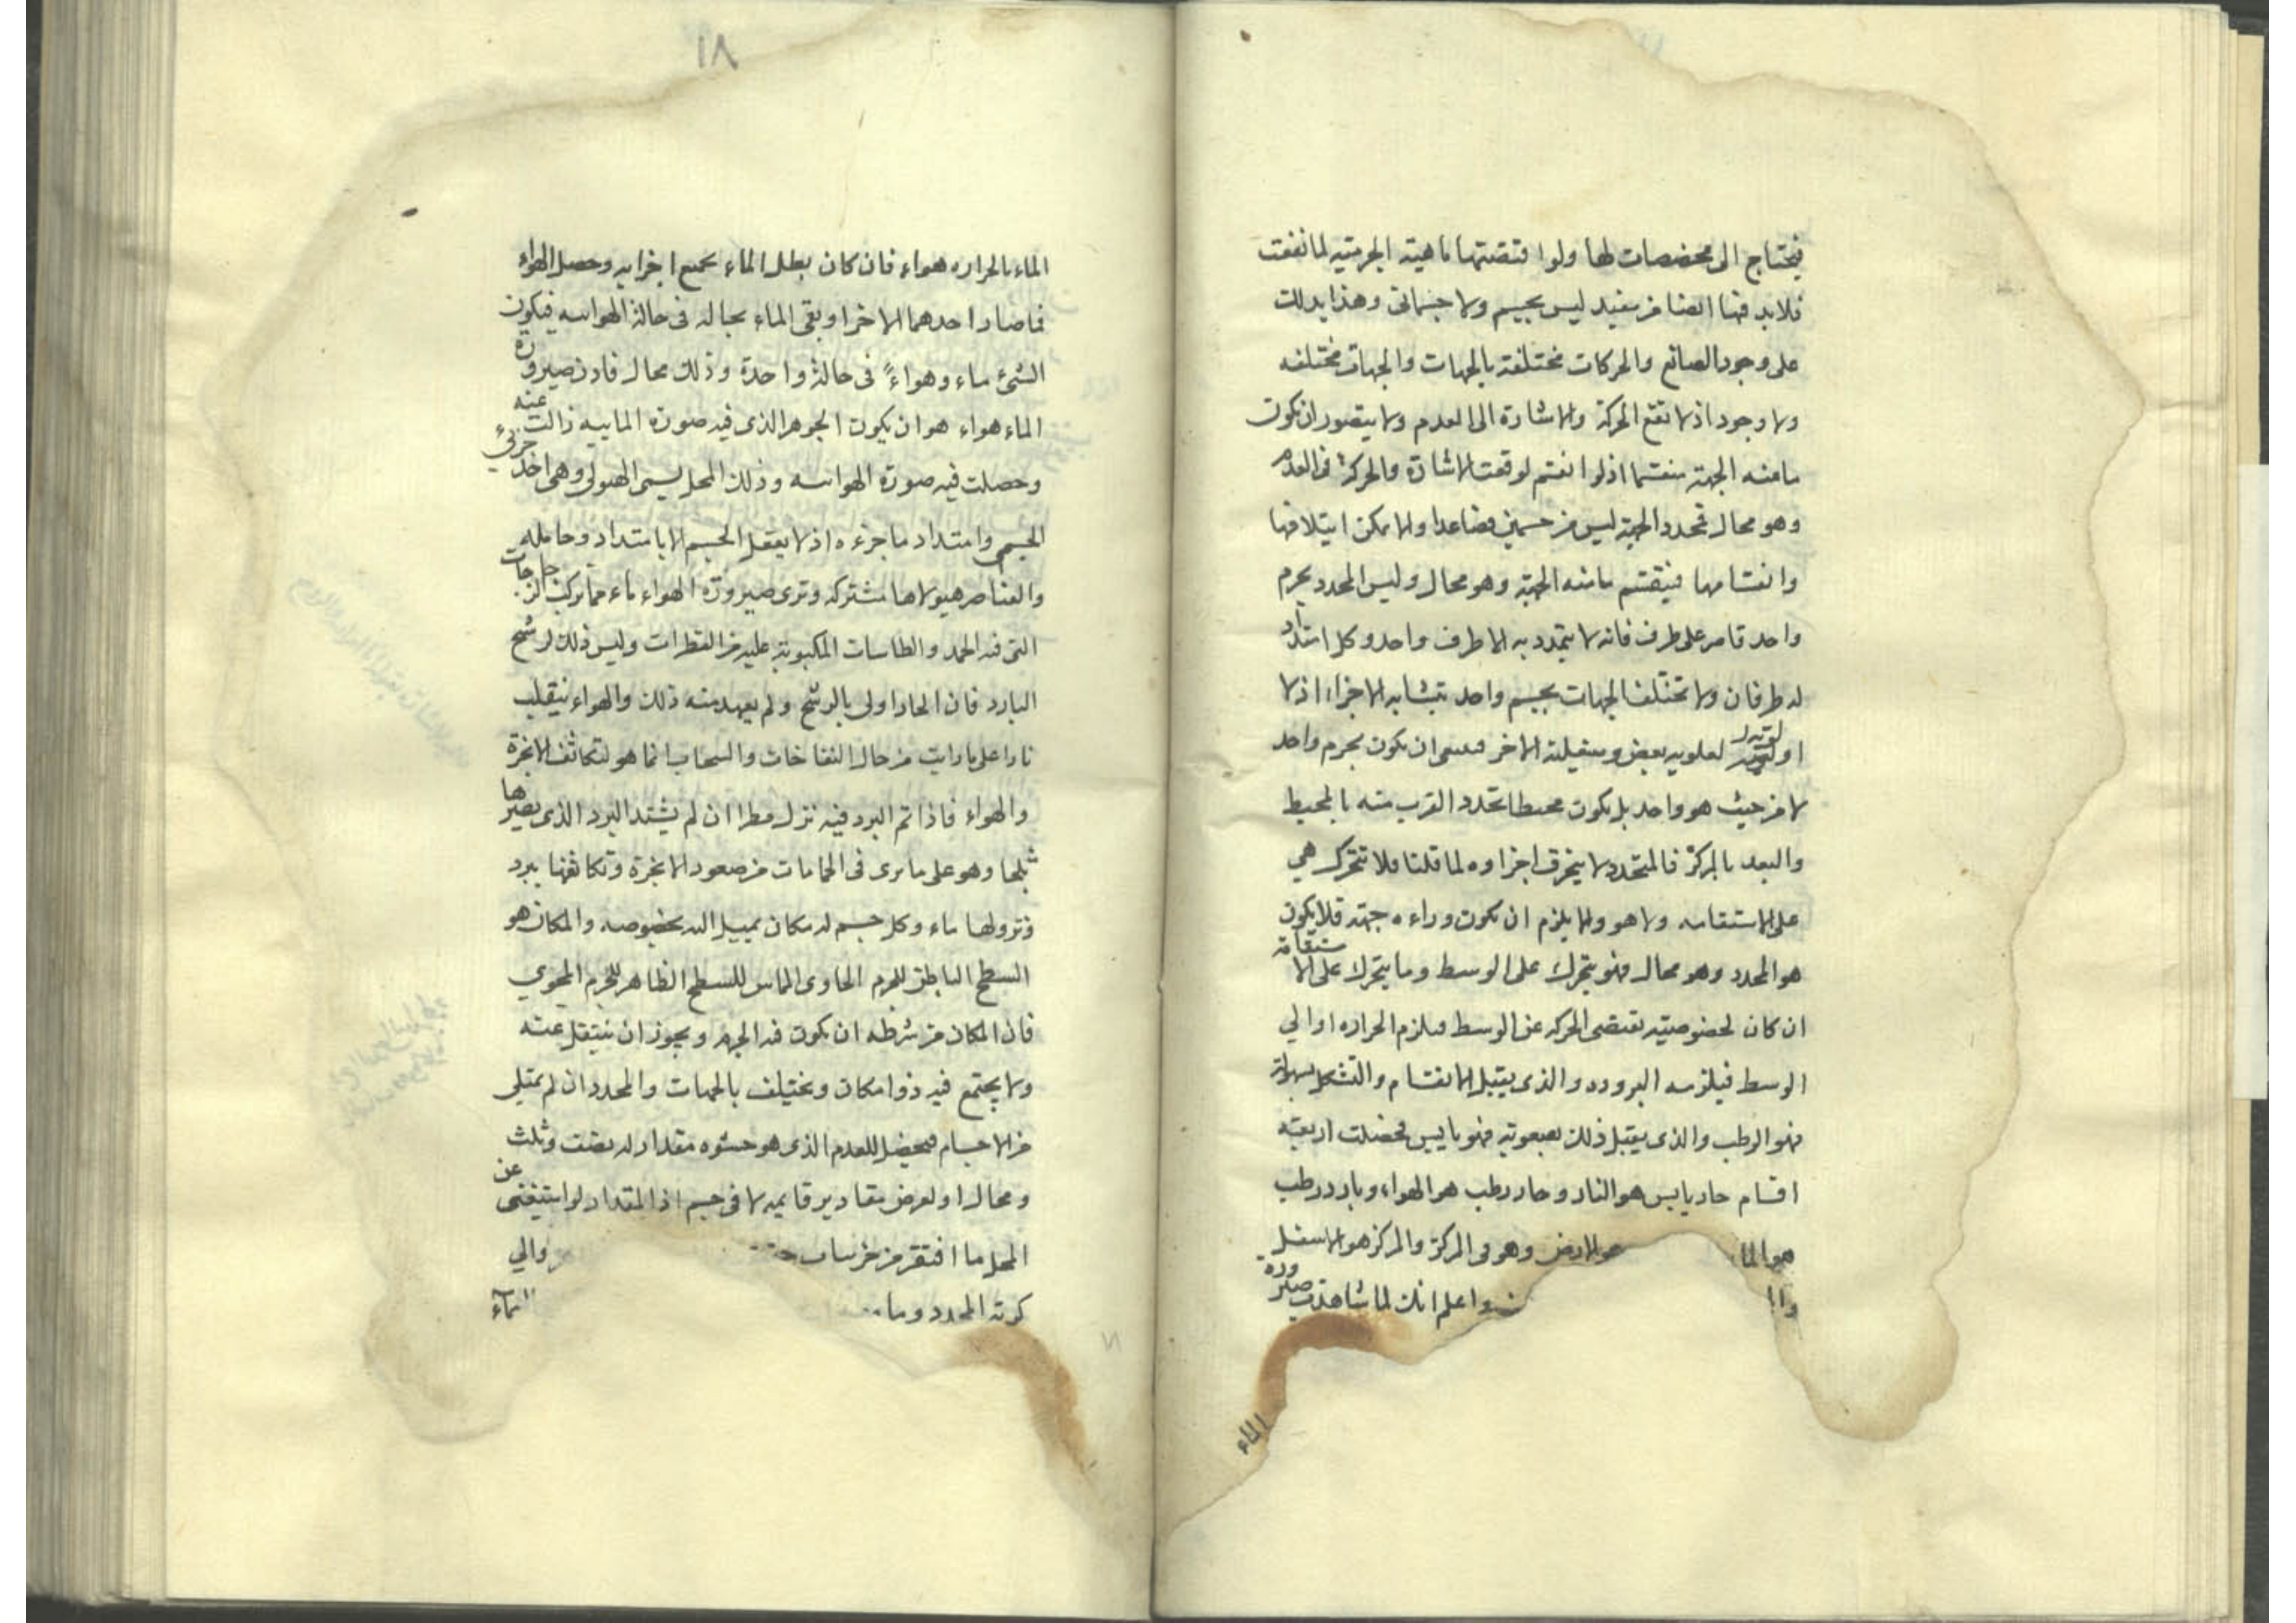 فيحتاج الى مخصصات لها ولو اقتضتها ماهية الجرمية لما اتفقت
فلابد فيها ايضا من مفيد ليس بجسم ولا جسمانى وهذا يدلك
على وجود الصانع والحركات مختلفة بالجهات والجهات مختلفه
ولا وجود اذ لا تقع الحركة والاشارة الى العدم ولا يتصور ان يكون
ما منه الجهة منقسما اذ لو انقسم لوقعت الاشارة والحركة فى العدم
وهو محال تحدد الجهة ليس من جسمين فصاعدا والا يمكن ايتلافها
وانقسامها فينقسم ما منه الجهة وهو محال وليس المحدد بجرم
واحد قاصر على طرف فانه لا يتحدد به الا طرف واحد وكل امتداد
له طرفان ولا تختلف الجهات بجسم واحد متشابه الاجزاء اذ لا
اولوية لعلويه بعض وسفيلة الاخر فينبغى ان يكون بجرم واحد
لا من حيث هو واحد بل يكون محيطا تحدد القرب منه بالمحيط
والبعد بالمركز فالمتحدد لا ينخرق اجزاوه لما قلنا فلا تتحرك هي
على الاستقامه ولا هو والا يلزم ان يكون وراءه جهته فلا يكون
هو المحدد وهو محال فهو يتحرك على الوسط وما يتحرك على الاستقامة
ان كان لخصوصيته تقتضى الحركه عن الوسط فيلزم الحراره او الي
الوسط فيلزمه البروده والذى يقبل الانقسام والتشكل بسهولة
فهو الرطب والذى يقبل ذلك بصعوبة فهو يابس فحصلت اربعة
اقسام حار يابس هو النار وحار رطب هو الهواء وبارد رطب
هو الما هو الارض وهو فى المركز والمركز هو الاسفل
واعلم انك لما شاهدت صيرورة
الماء
١٨
الماء بالحراره هواء فان كان بطل الماء بجميع اجزايه وحصل الهواء
فما صار احدهما الاخر او بقى الماء بحاله فى حالة الهوائيه فيكون
الشئ ماء وهواءً فى حالة واحدة وذلك محال فاذن صيرورة
الماء هواء هو ان يكون الجوهر الذى فيه صورة المائيه زالت عنه
وحصلت فيه صورة الهوائيه وذلك المحل يسمى الهيولى وهى احد جزئي
الجسم وامتداد ما جزءه اذ لا يعقل الجسم الا بامتداد وحامله
والعناصر هيولاها مشتركه وترى صيرورة الهواء ماء مما يركب الزجاجات
التى فيه الجمد والطاسات المكبوبة عليه من القطرات وليس ذلك لرشح
البارد فان الحار اولى بالرشح ولم يعهد منه ذلك والهواء ينقلب
نارا على ما رايت من حال النفاخات والسحاب انما هو لتكاثف الابخرة
والهواء فاذا تم البرد فيه نزل مطرا ان لم يشتد البرد الذى يصيرها
ثلجا وهو على ما يرى فى الحمامات من صعود الابخرة وتكاثفها ببرد
ونزولها ماء وكل جسم له مكان يميل اليه بخصوصه والمكان هو
السطح الباطن للجرم الحاوى المماس للسطح الظاهر للجرم المحوي
فان المكان من شرطه ان يكون فيه الجرم ويجوز ان ينتقل عنه
ولا يجتمع فيه ذوا مكان ويختلف بالجهات والمحدد ان لم يمتلى
من الاجسام فيحصل للعدم الذى هو حشوه مقدار له نصف وثلث
ومحال او لعرض مقادير قايمه لا فى جسم اذ المقدار لو استغنى عن
المحل ما افتقر والي
كرته المحدد وما
١٨